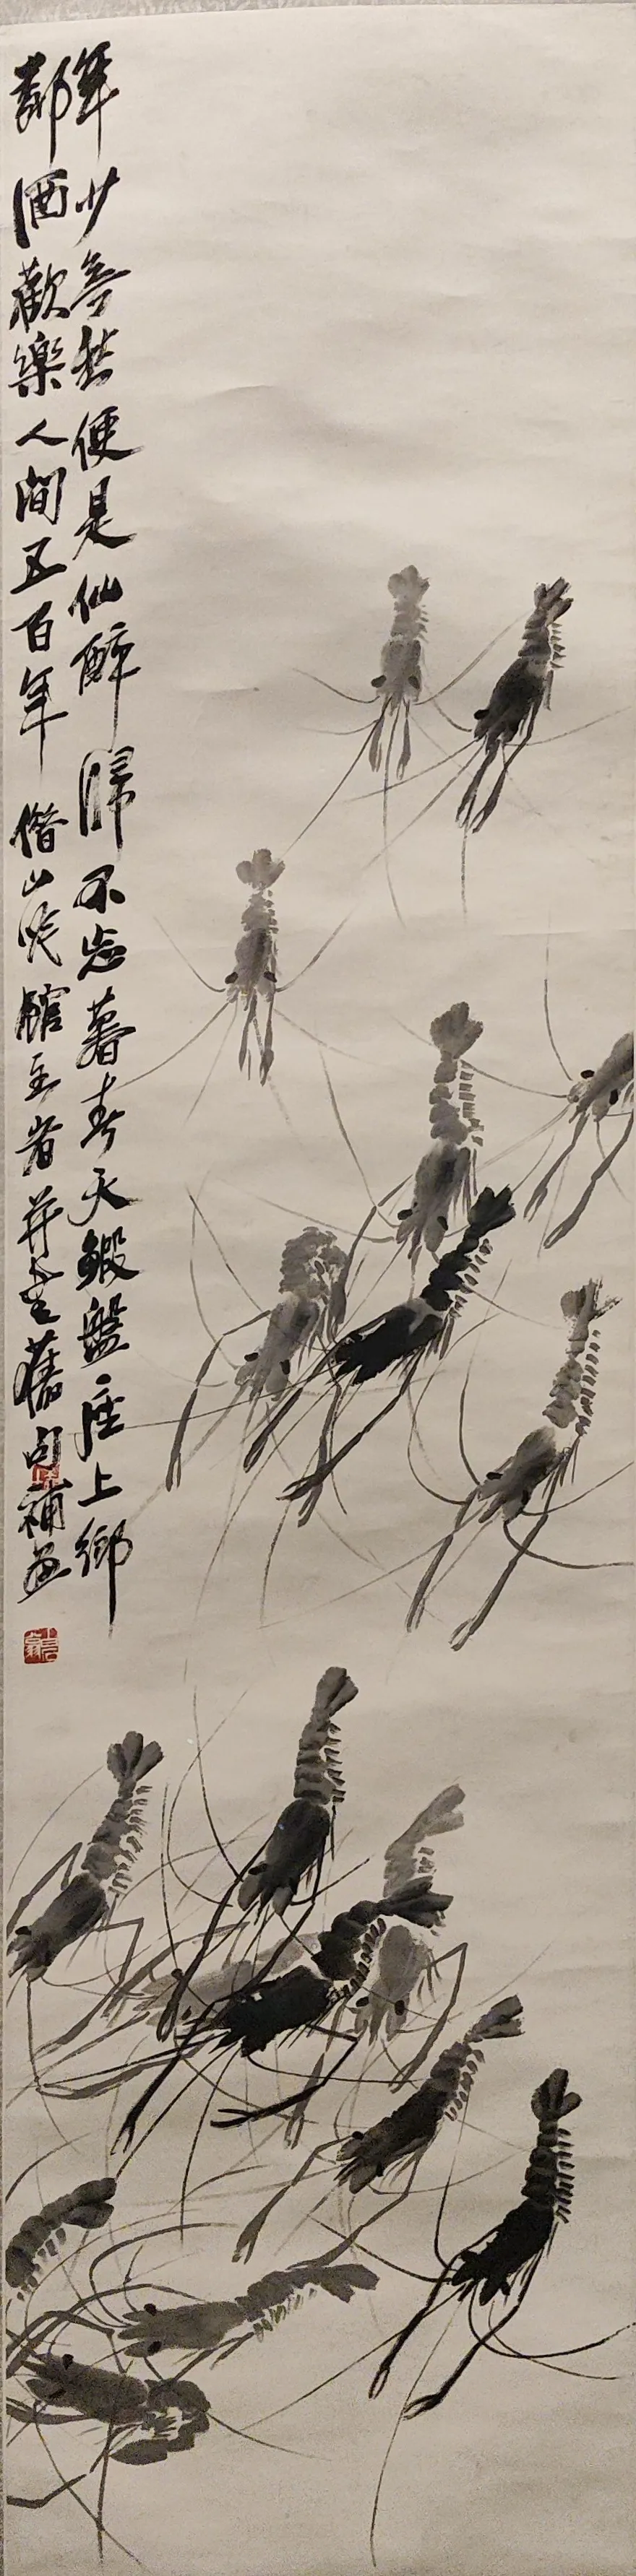 年少然便是仙醉歸不忘暮春天鰕盤座上鄉
酒歡樂人間五百年 借山吟館主者并舊句補